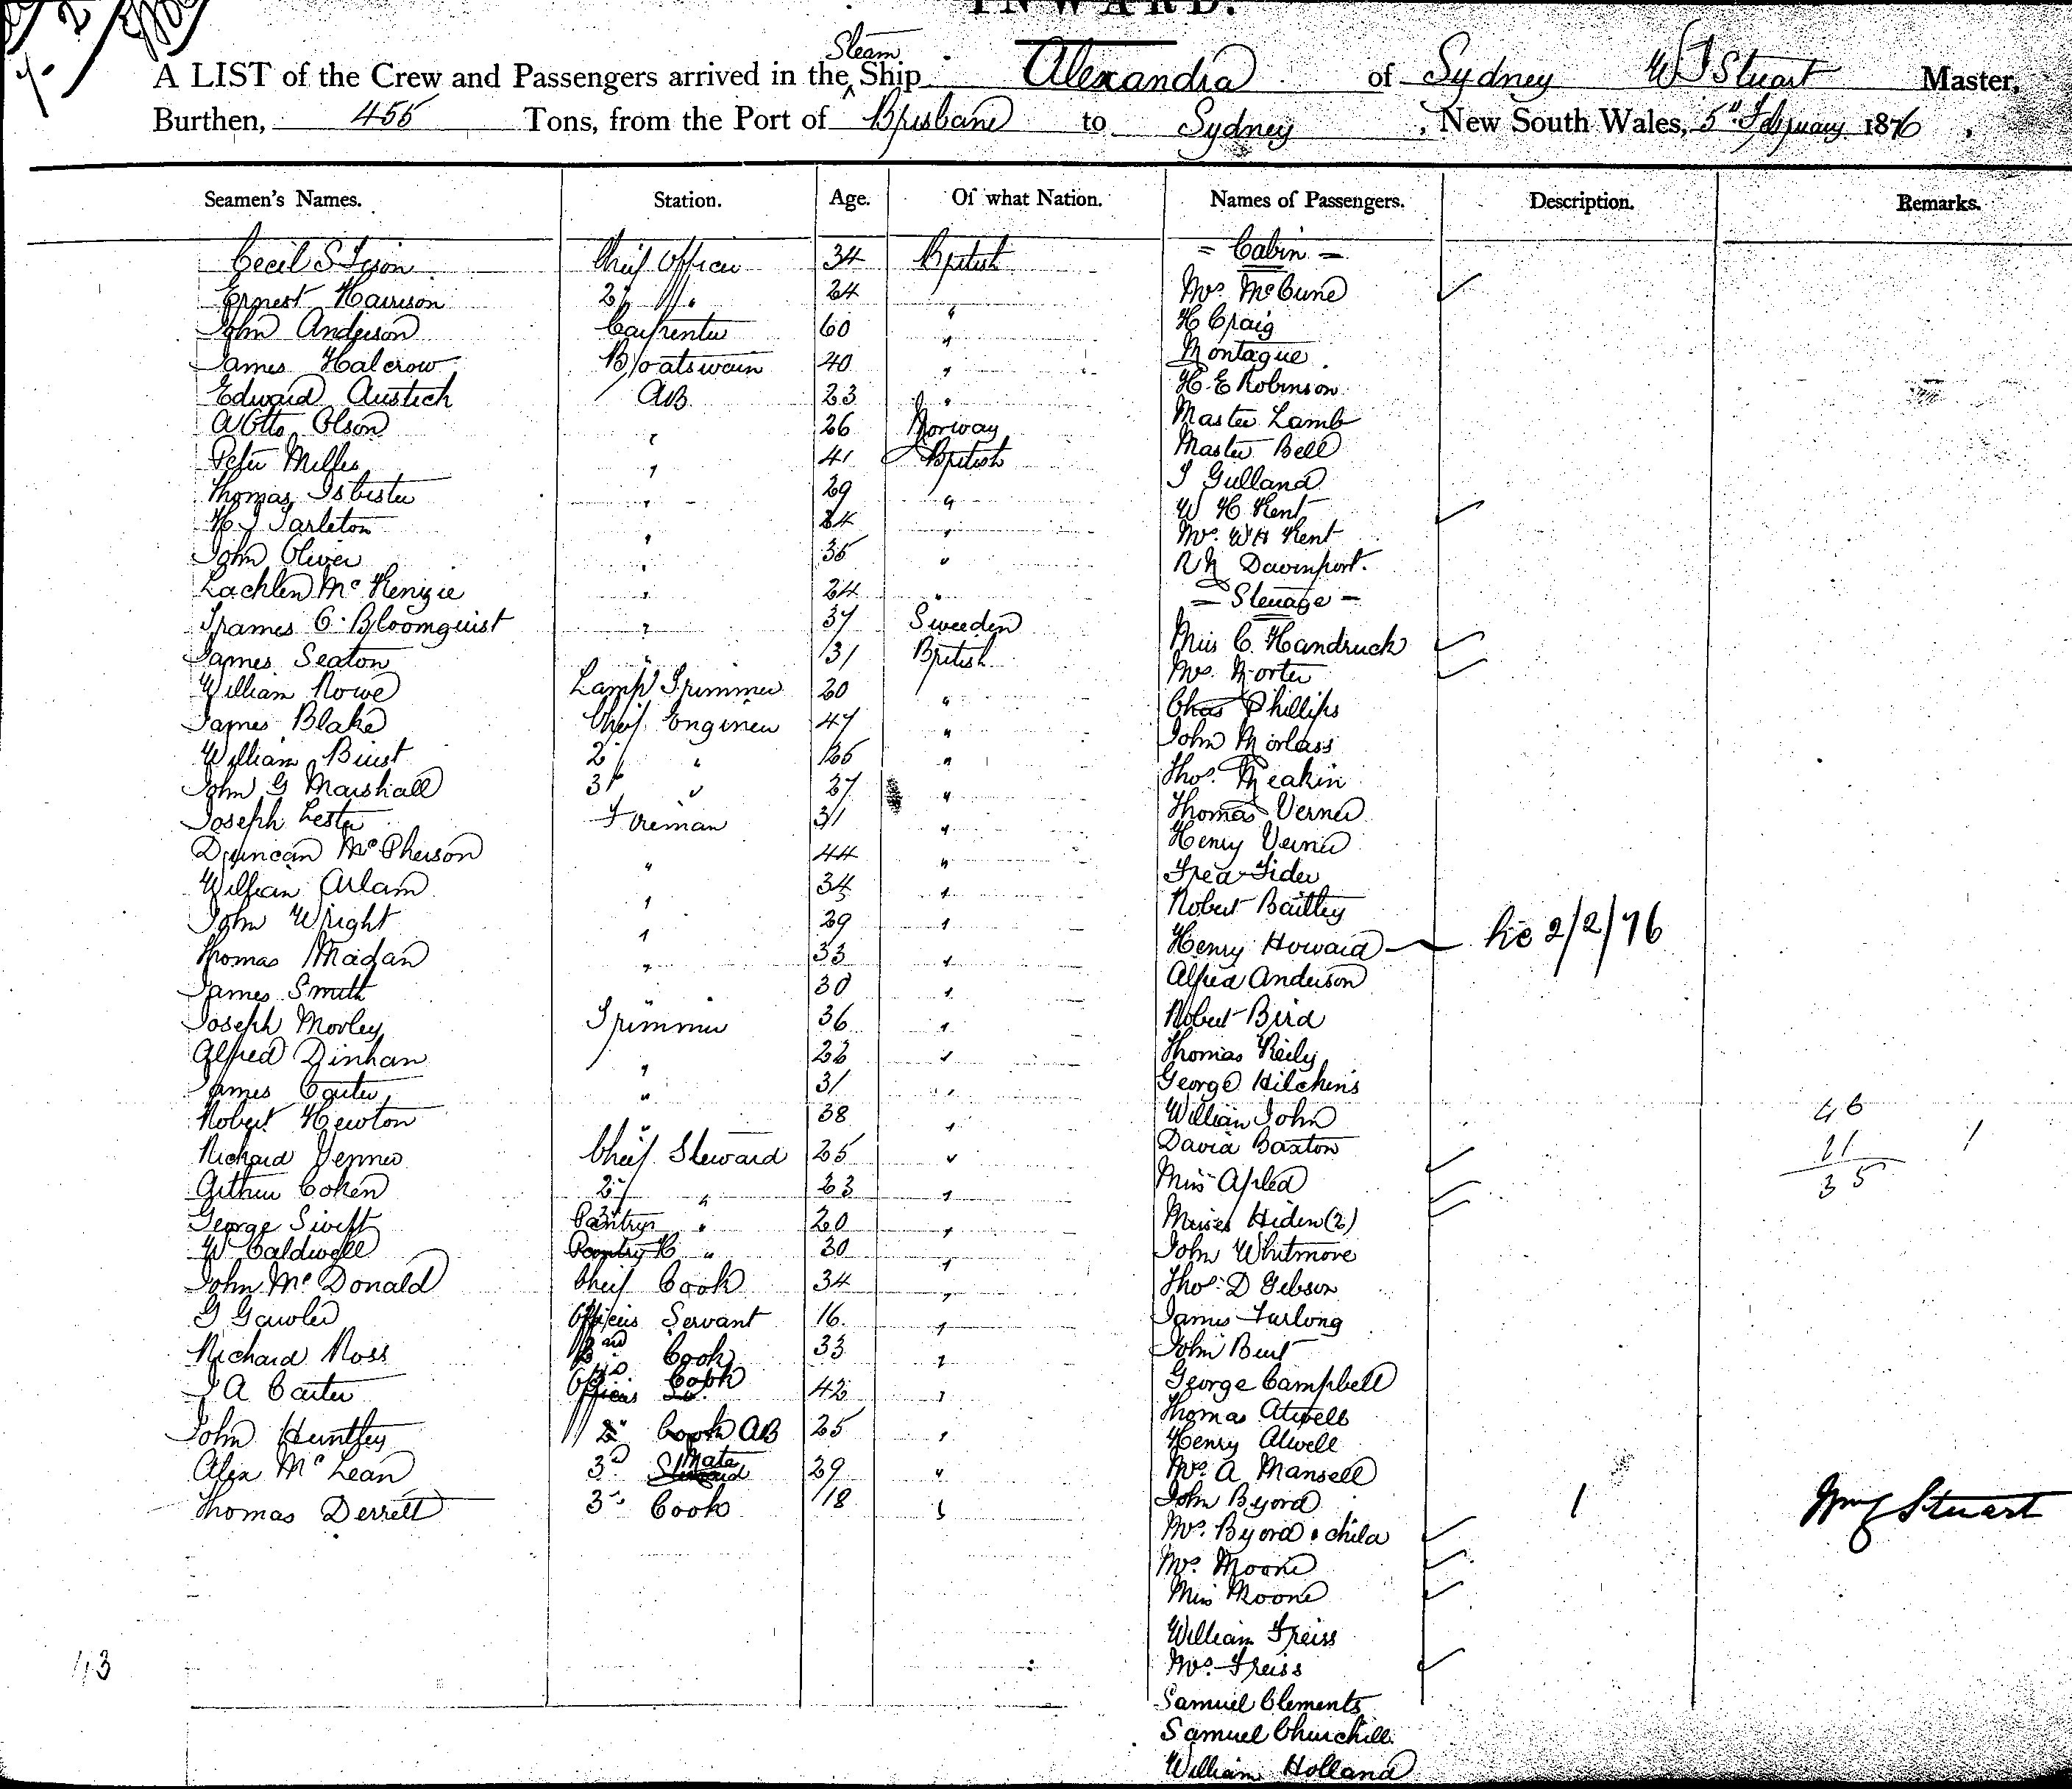 INWARD.
A LIST of the Crew and Passengers arrived in the Steam Ship Alexandra of Sydney W J Stuart Master,
Burthen, 455 Tons, from the Port of Brisbane to Sydney, New South Wales, 5th February 1876,
Seamen's Names. Station. Age. Of what Nation. Names of Passengers. Description. Remarks.
Cecil S Tyson Chief Officer 34 British = Cabin =
Ernest Harrison 2d Do 24 " Mrs McCune
John Anderson Carpenter 60 " H Craig
James Halcrow Boatswain 40 " Montague
Edward Austich AB 23 " H E Robinson
A Otto Olson " 26 Norway Master Lamb
Peter Milles " 41 British Master Bell
Thomas Isbister " 29 " J Gulland
H J Tarleton " 24 " W H Kent
John Oliver " 35 " Mrs WH Kent
Lachlen McKenzie " 24 " Davenport.
C. Bloomquist " 37 Sweeden - Steerage -
James Seaton " 31 British Miss C. Handruck
William Rowe Lamp Trimmer 20 " Mrs Norter
James Blake Chief Engineer 47 " Chas Phillips
William Buist 2d " 35 " John Morlass
John G Marshall 3d " 27 " Thos. Meakin
Joseph Lester Fireman 31 " Thomas Verner
Duncan McPherson " 44 " Henry Verner
William Arlam " 34 " Fred Fider
John Wright " 29 " Robert Bailley
Thomas Madan " 33 " Henry Howard 2/2/76
James Smith " 30 " Alfred Anderson
Joseph Morley Trimmer 36 " Robert Bird
Alfred Dinhan " 22 " Thomas Reily
James Carter " 31 " George Hilchens
Robert Newton " 38 " William John 46
Richard Venner Chief Steward 25 " David Baxton 11 1
Arthur Cohen 2d " 23 " Miss Apled 35
George Swift Pantry " 20 " Misses Hiden (2)
W Caldwell Pantry " 30 " John Whitmore
John McDonald Chief Cook 34 " Thos. D Gibson
G Gawler Officers Servant 16 " James Furlong
Richard Ross 2nd Cook 33 " John Burt
J A Carter Officers Cook 42 " George Campbell
Thomas Atwell
John Huntley Cook AB 25 " Henry Atwell
Alex McLean 3d Mate 29 " Mrs A Mansell
Thomas Derrett 3d Cook 18 " John Byord 1 Wm J Stuart
Mrs Byord & child
Mrs Moone
Miss Moone
William Freiss
43 Mrs Freiss
Samuel Clements
Samuel Churchill
William Holland